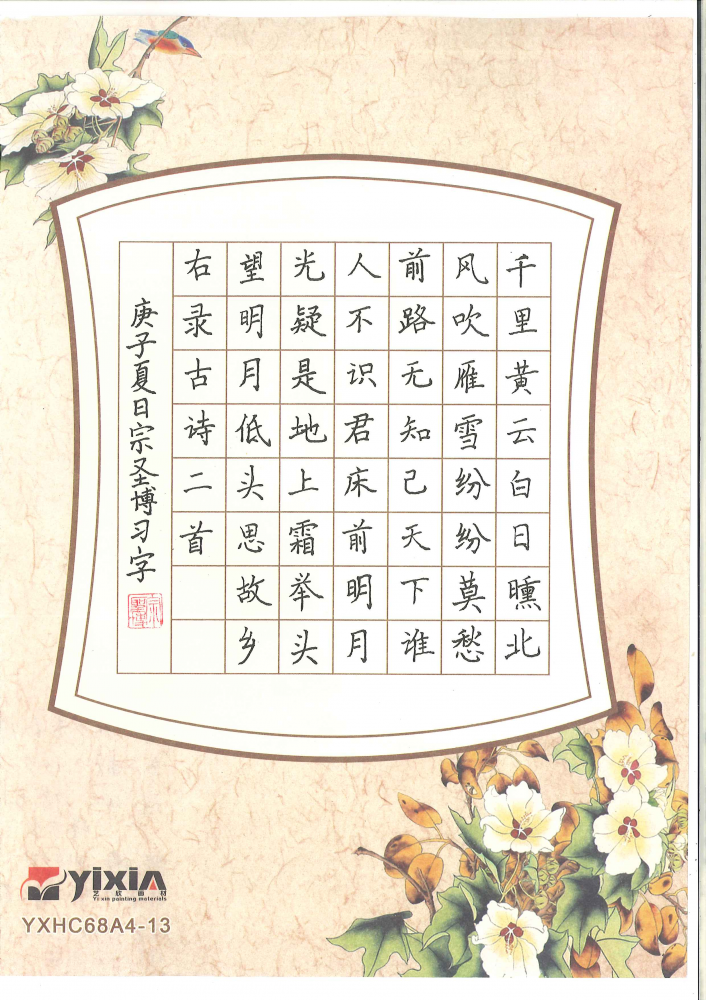 千里黄云白日曛北
风吹雁雪纷纷莫愁
前路无知己天下谁
人不识君床前明月
光疑是地上霜举头
望明月低头思故乡
右录古诗二首
庚子夏日宗圣博习字
宗圣博
YiXiN
艺欣画材
Yi xin painting materials
YXHC68A4-13